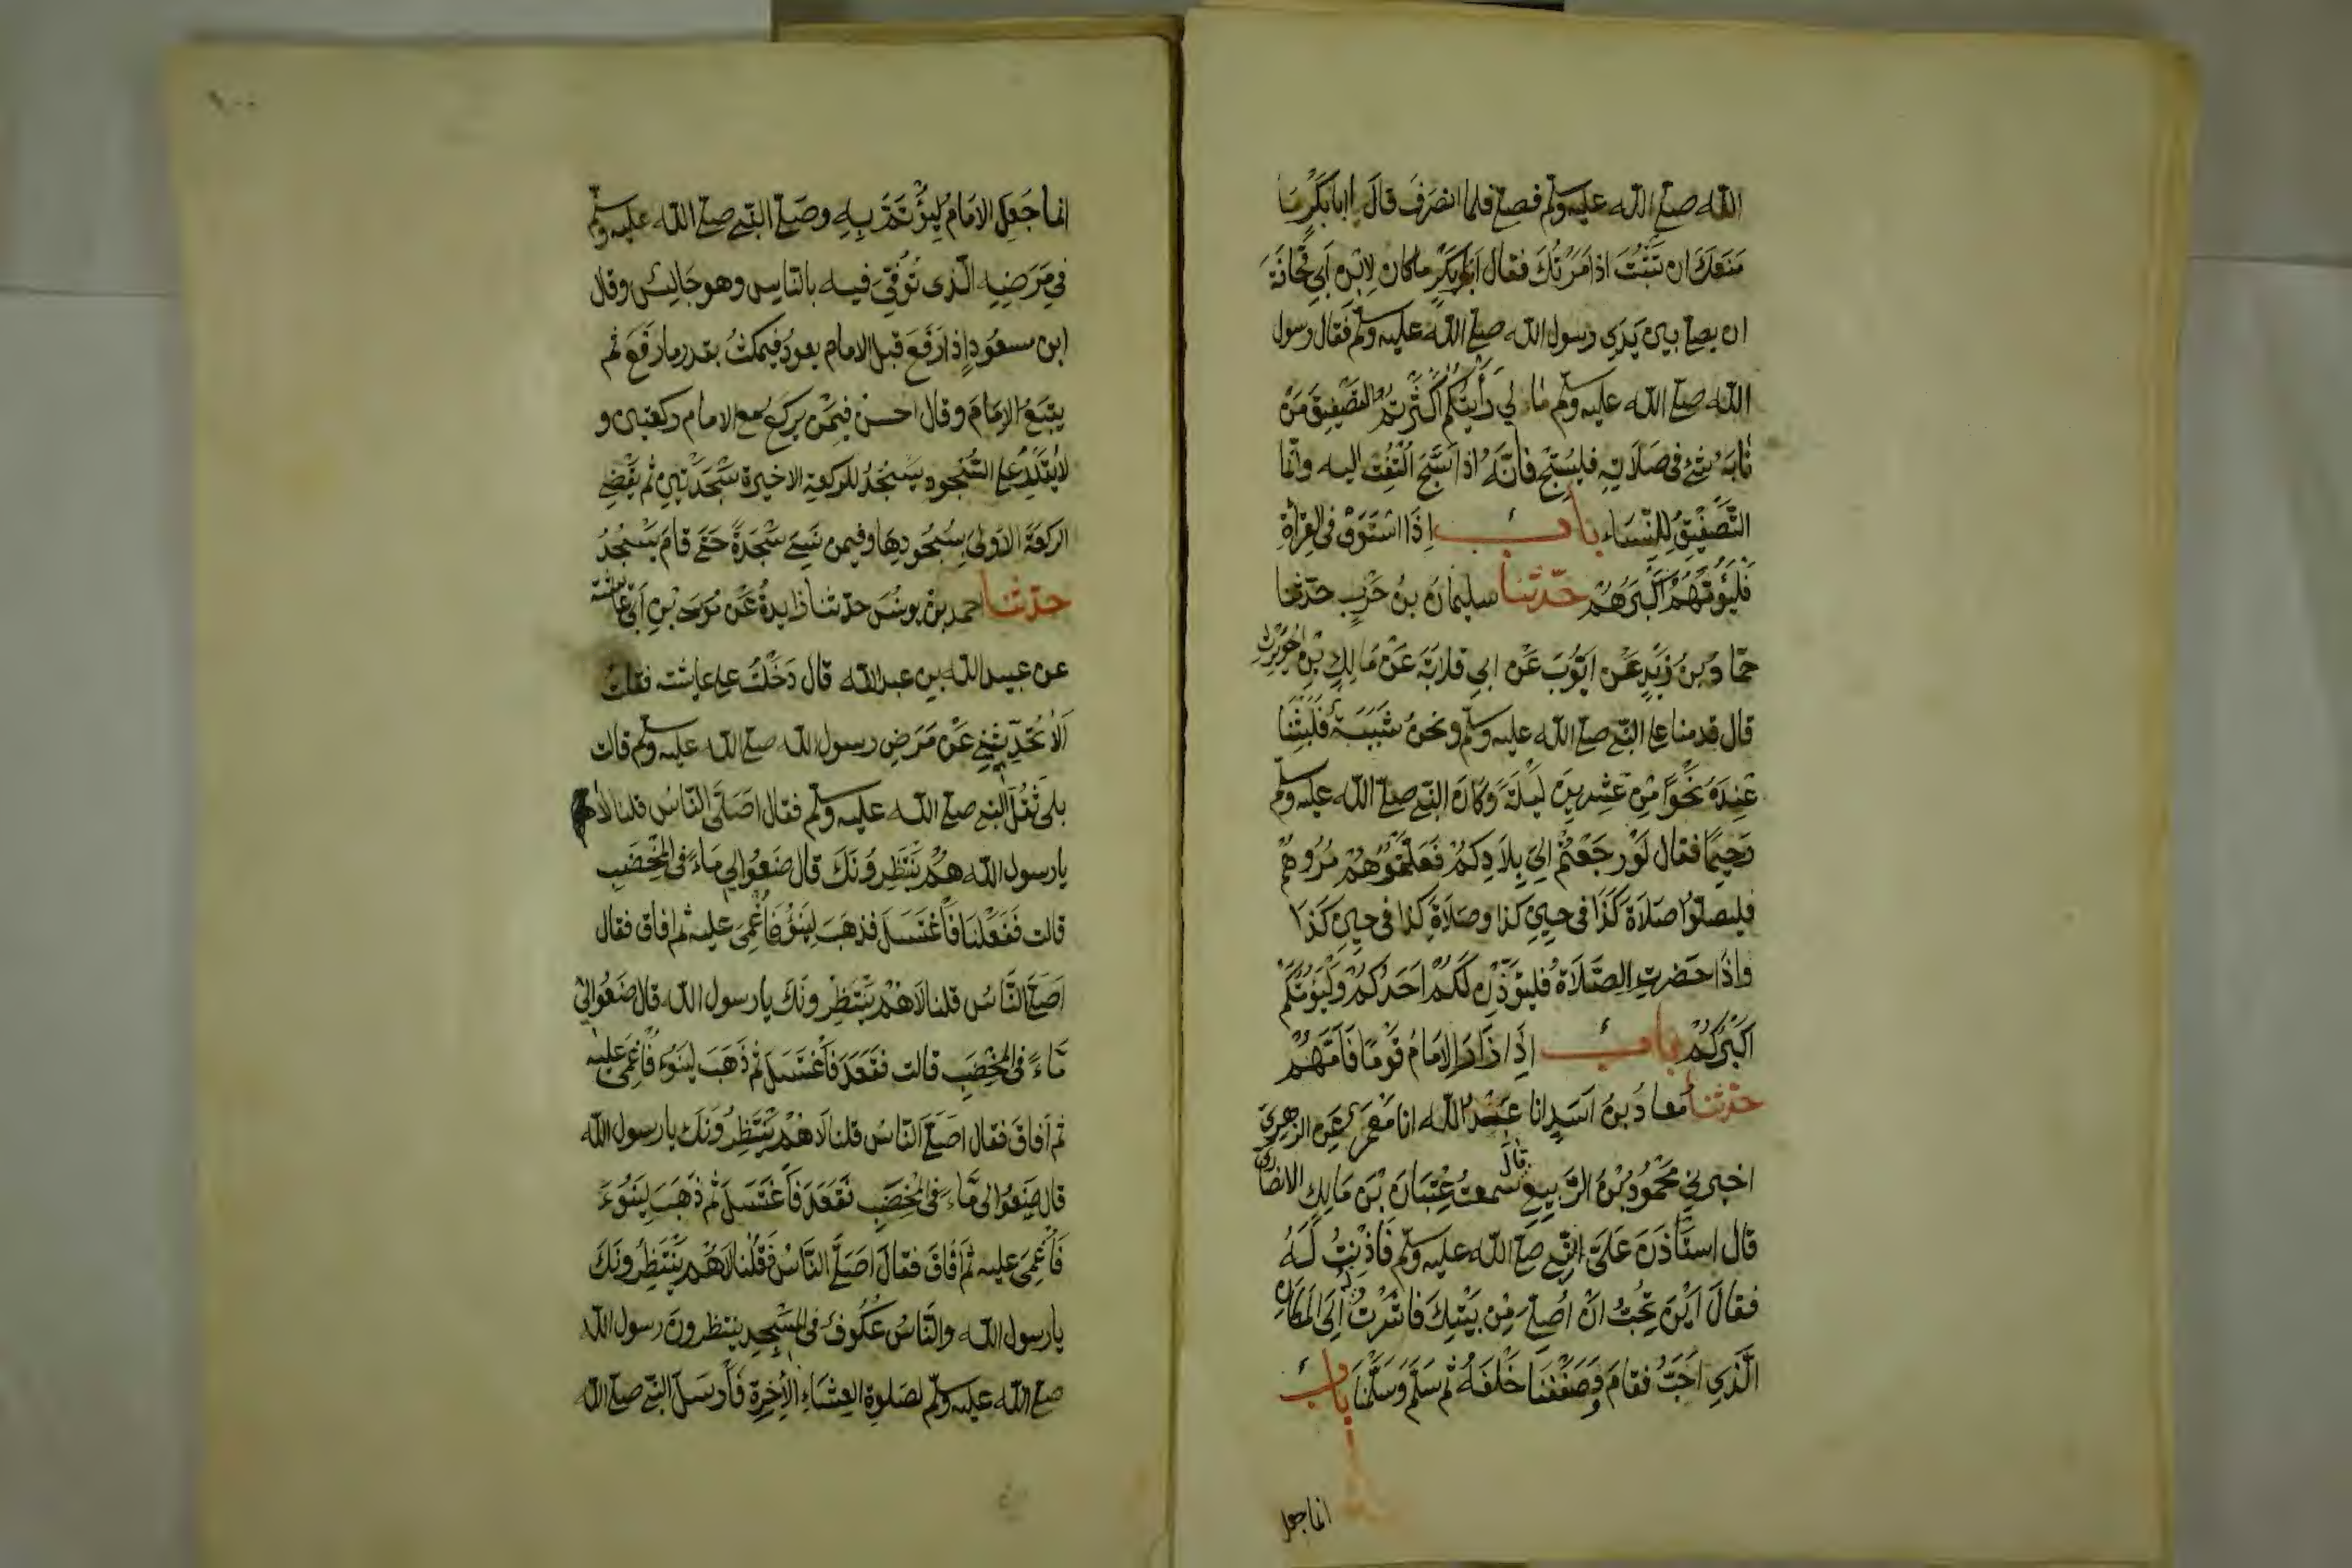 الله صلى الله عليه وسلم فصلى فلما انصرف قال يا ابا بكر ما
منعك ان تثبت اذ امرتك فقال ابو بكر ما كان لابن ابي قحافة
ان يصلى بين يدي رسول الله صلى الله عليه وسلم فقال رسول
الله صلى الله عليه وسلم ما لي رأيتكم اكثرتم التصفيق من
نابه شئ فى صلاته فليسبح فانه اذا سبح التفت اليه وانما
التصفيق للنساء باب اذا استووا فى القراءة
فليؤمهم اكبرهم حدثنا سليمان بن حرب حدثنا
حماد بن زيد عن ايوب عن ابي قلابة عن مالك بن الحويرث
قال قدمنا على النبي صلى الله عليه وسلم ونحن شببة فلبثنا
عنده نحوا من عشرين ليلة وكان النبي صلى الله عليه وسلم
رحيما فقال لو رجعتم الى بلادكم فعلمتموهم مروهم
فليصلوا صلاة كذا فى حين كذا وصلاة كذا فى حين كذا
واذا حضرت الصلاة فليؤذن لكم احدكم وليؤمكم
اكبركم باب اذا زار الامام قوما فأمهم
حدثنا معاذ بن اسد انا عبد الله انا معمر عن الزهري
اخبرني محمود بن الربيع قال سمعت عتبان بن مالك الانصاري
قال استأذن على النبي صلى الله عليه وسلم فأذنت له
فقال اين تحب ان أصلي من بيتك فاشرت له إلى المكان
الذي احب فقام وصففنا خلفه ثم سلم وسلمنا باب
انما جعل
انما جعل الامام ليؤتم به وصلى النبي صلى الله عليه وسلم
فى مرضه الذى توفى فيه بالناس وهو جالس وقال
ابن مسعود اذا رفع قبل الامام يعود فيمكث بقدر ما رفع ثم
يتبع الامام وقال الحسن فيمن يركع مع الامام ركعتين و
لا يقدر على السجود يسجد للركعة الاخيرة سجدتين ثم يقضى
الركعة الاولى بسجودها وفيمن نسى سجدة حتى قام يسجد
حدثنا احمد بن يونس حدثنا زايدة عن موسى بن ابى عائشة
عن عبيد الله بن عبد الله قال دخلت على عايشة فقلت
ألا تحدثيني عن مرض رسول الله صلى الله عليه وسلم قالت
بلى ثقل النبي صلى الله عليه وسلم فقال اصلى الناس قلنا لا هم
يا رسول الله هم ينتظرونك قال ضعوا لي ماء فى المخضب
قالت ففعلنا فاغتسل فذهب لينوء فأغمى عليه ثم افاق فقال
اصلى الناس قلنا لا هم ينتظرونك يا رسول الله قال ضعوا لى
ماء فى المخضب قالت فقعد فاغتسل ثم ذهب لينوء فأغمى عليه
ثم أفاق فقال اصلى الناس قلنا لا هم ينتظرونك يا رسول الله
قال ضعوا لى ماء فى المخضب فقعد فاغتسل ثم ذهب لينوء
فأغمى عليه ثم أفاق فقال اصلى الناس فقلنا لا هم ينتظرونك
يا رسول الله والناس عكوف فى المسجد ينتظرون رسول الله
صلى الله عليه وسلم لصلوة العشاء الآخرة فأرسل النبي صلى الله